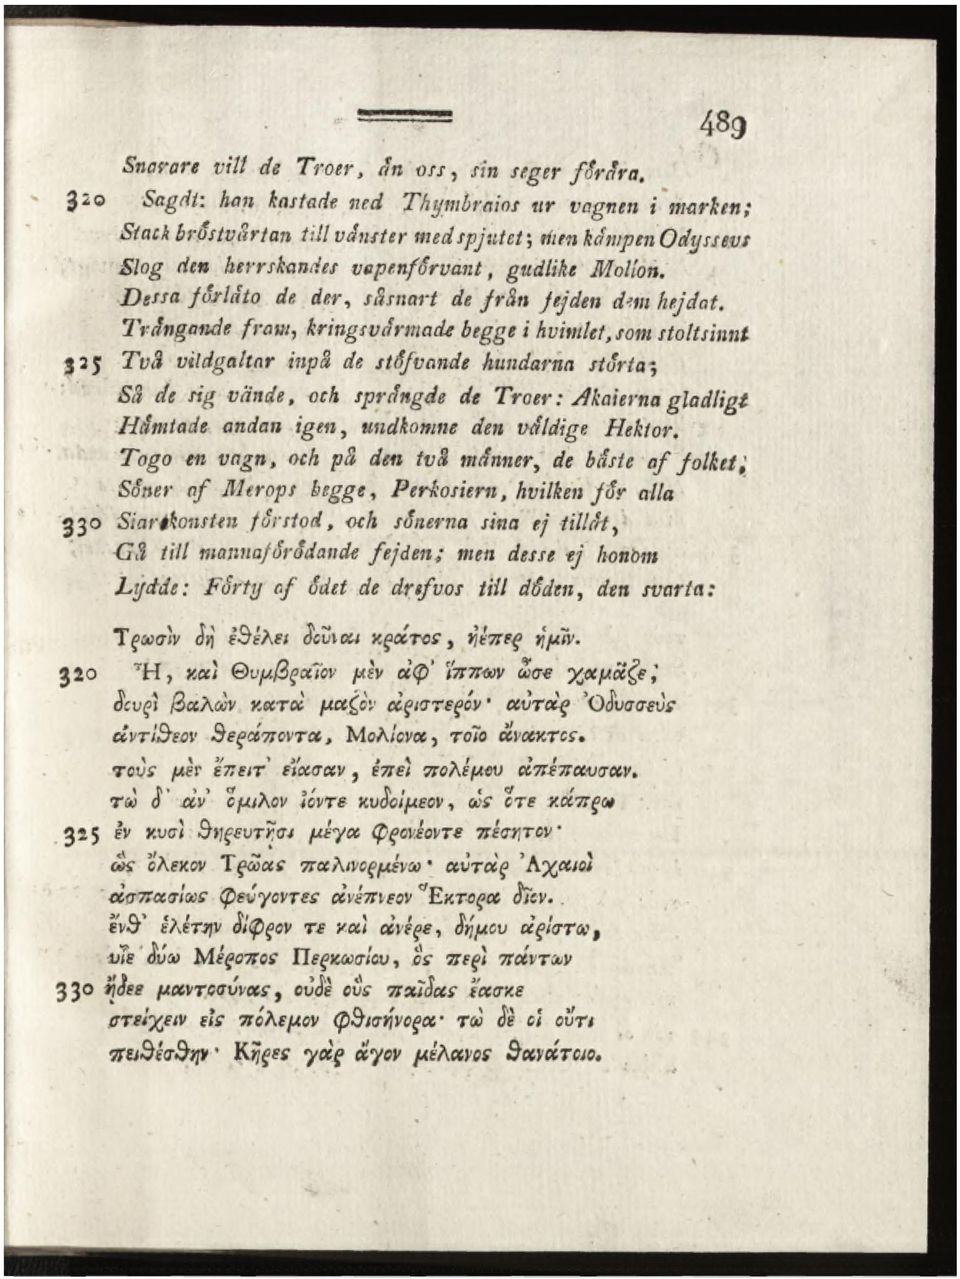 489
Snarare vill de Troer, än oss, sin seger förära.
320 Sagdt: han kastade ned Thymbraios ur vagnen i marken;
Stack bröstvårtan till vänster med spjutet; men kämpen Odyssevs
Slog den herrskandes vapenförvant, gudlike Molion.
Dessa förläto de der, såsnart de från fejden dem hejdat.
Trängande fram, kringsvärmade begge i hvimlet, som stoltsinnt
325 Två vildgaltar inpå de stöfvande hundarna störta;
Så de sig vände, och sprängde de Troer: Akaierna gladligt
Hämtade andan igen, undkomne den väldige Hektor.
Togo en vagn, och på den två männer, de bäste af folket;
Söner af Merops begge, Perkosiern, hvilken för alla
330 Siarekonsten förstod, och sönerna sina ej tillät,
Gå till mannaförödande fejden; men desse ej honom
Lydde: Förty af ödet de drefvos till döden, den svarta:
Τρωσὶν δὴ ἐθέλει δοῦναι κράτος, ἠέπερ ἡμῖν.
320 Ἦ, καὶ Θυμβραῖον μὲν ἀφ' ἵππων ὦσε χαμᾶζε;
δουρὶ βαλὼν κατὰ μαζὸν ἀριστερόν· αὐτὰρ Ὀδυσσεὺς
ἀντίθεον θεράποντα, Μολίονα, τοῖο ἄνακτος.
τοὺς μὲν ἔπειτ' εἴασαν, ἐπεὶ πολέμου ἀπέπαυσαν.
τὼ δ' ἀν' ὅμιλον ἰόντε κυδοίμεον, ὡς ὅτε κάπρω
325 ἐν κυσὶ θηρευτῇσι μέγα φρονέοντε πέσητον·
ὣς ὄλεκον Τρῶας παλινορμένω· αὐτὰρ Ἀχαιοὶ
ἀσπασίως φεύγοντες ἀνέπνεον Ἕκτορα δῖον.
ἔνθ' ἑλέτην δίφρον τε καὶ ἀνέρε, δήμου ἀρίστω,
υἷε δύω Μέροπος Περκωσίου, ὃς περὶ πάντων
330 ᾔδεε μαντοσύνας, οὐδὲ οὓς παῖδας ἔασκε
στείχειν εἰς πόλεμον φθισήνορα· τὼ δὲ οἱ οὔτι
πειθέσθην· Κῆρες γὰρ ἄγον μέλανος θανάτοιο.